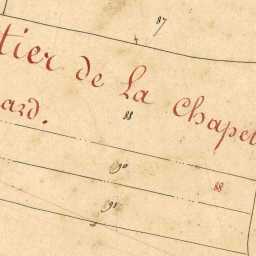 87
tier de la Chapel
ard.
88
90
88
91